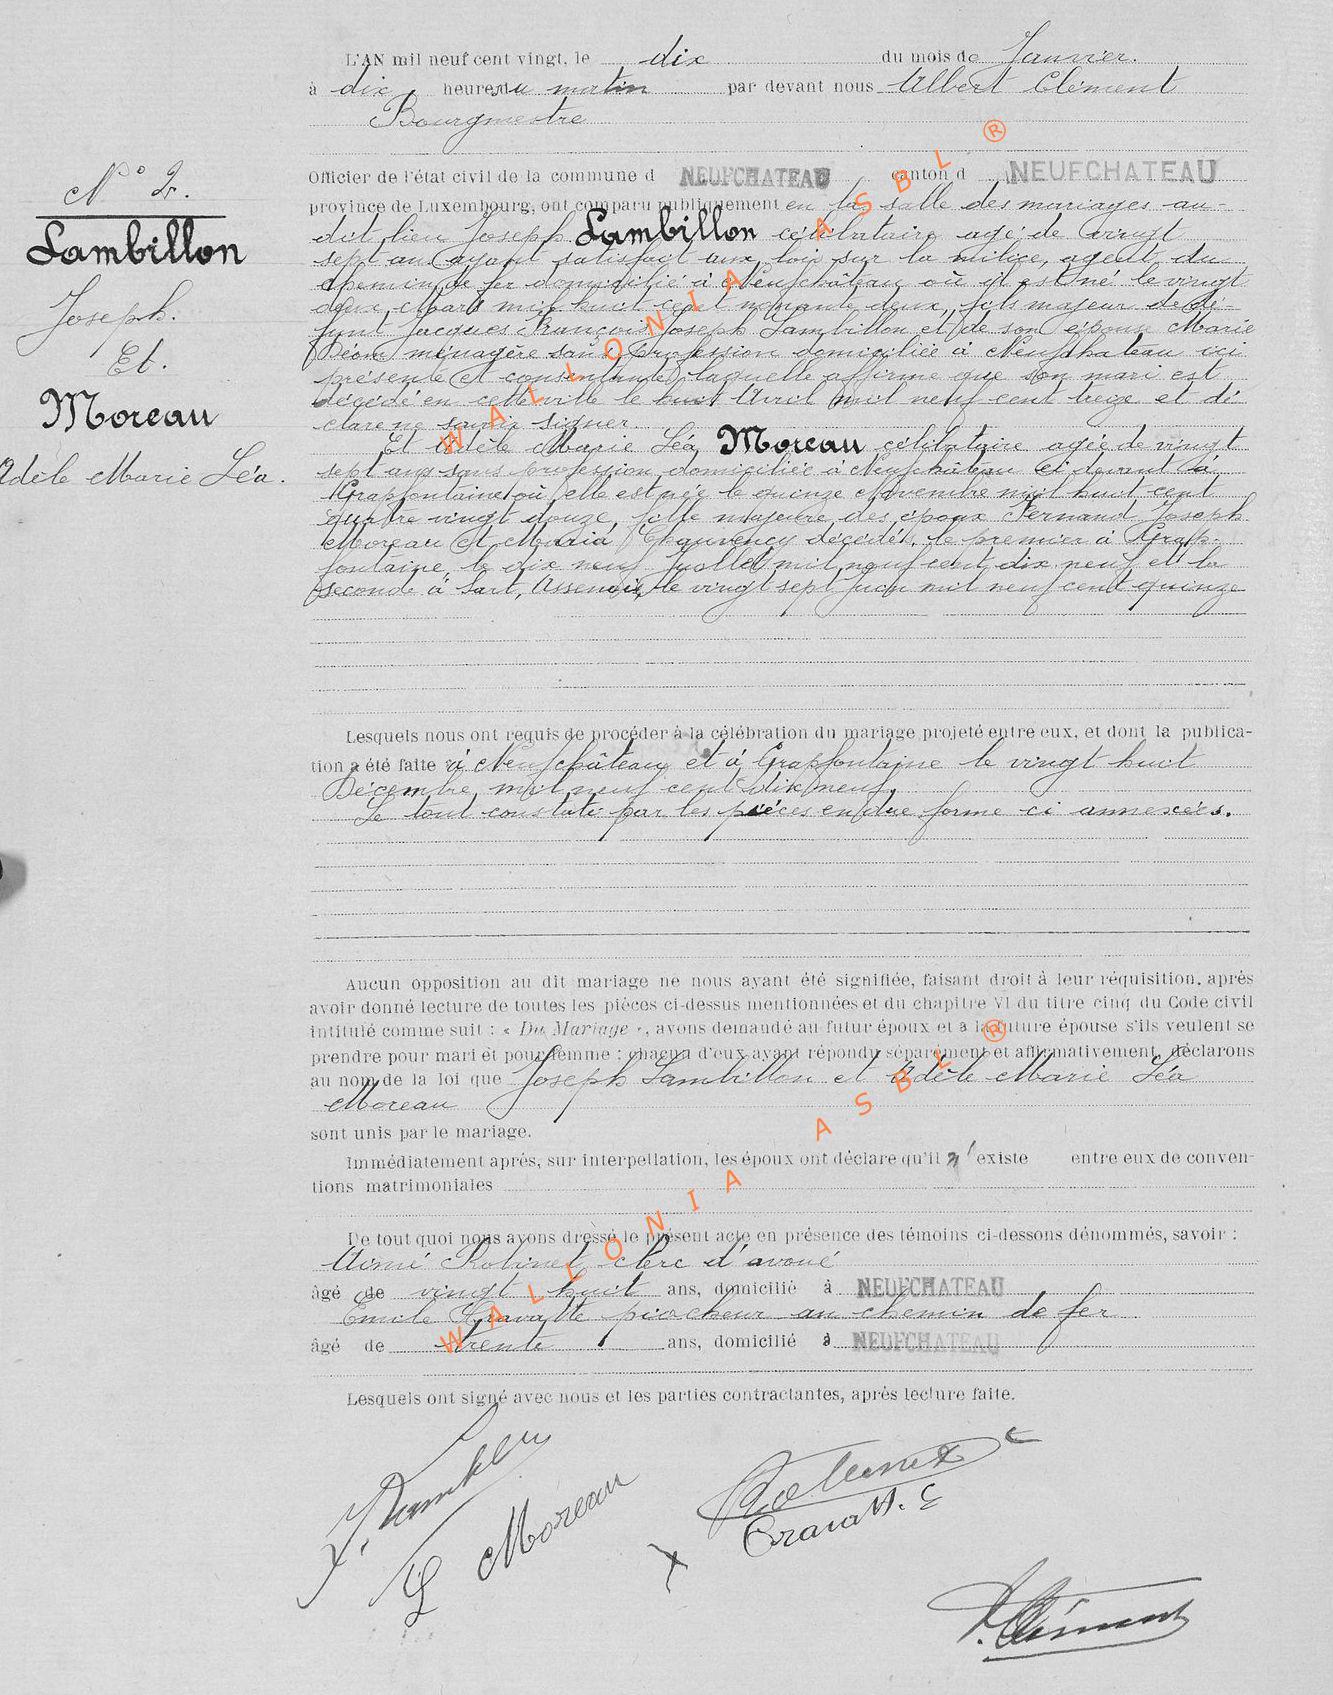 L'AN mil neuf cent vingt, le dix du mois de Janvier.
à dix heures du matin par devant nous Albert Clément
Bourgmestre
Officier de l'état civil de la commune d NEUFCHATEAU canton d NEUFCHATEAU
province de Luxembourg, ont comparu publiquement en la salle des mariages au-
dit lieu Joseph Lambillon célibataire agé de vingt
sept ans ayant satisfait aux lois sur la milice, agent du
chemin de fer domicilié à Neufchâteau où il est né le vingt
deux Mars mil huit cent nonante deux, fils majeur de dé-
funt Jacques François Joseph Lambillon et de son épouse Marie
Déom ménagère sans profession domiciliée à Neufchateau ici
présente et consentante laquelle affirme que son mari est
décédé en cette ville le huit Avril mil neuf cent treize et dé
clare ne savoir signer.
Et Adèle Marie Léa Moreau célibataire agée de vingt
sept ans sans profession domiciliée à Neufchâteau ci devant à
Grapfontaine où elle est née le quinze Novembre mil huit cent
quatre vingt douze, fille majeure des époux Fernand Joseph
Moreau et Maria Chauvency décédés, le premier à Grap-
fontaine, le dix neuf Juillet mil neuf cent dix neuf et la
seconde à Sart, Assenois, le vingt sept Juin mil neuf cent quinze
N° 2.
Lambillon
Joseph.
Et.
Moreau
Adèle Marie Léa.
Lesquels nous ont requis de procéder à la célébration du mariage projeté entre eux, et dont la publica-
tion a été faite à Neufchâteau et à Grapfontaine le vingt huit
Décembre mil neuf cent dix neuf.
Le tout constaté par les pièces en due forme ci annexées.
Aucun opposition au dit mariage ne nous ayant été signifiée, faisant droit à leur réquisition, après
avoir donné lecture de toutes les pièces ci-dessus mentionnées et du chapitre VI du titre cinq du Code civil
intitulé comme suit : « Du Mariage », avons demandé au futur époux et a la future épouse s'ils veulent se
prendre pour mari et pour femme ; chacun d'eux ayant répondu séparément et affirmativement, déclarons
au nom de la loi que Joseph Lambillon et Adèle Marie Léa
Moreau
sont unis par le mariage.
Immédiatement après, sur interpellation, les époux ont déclare qu'il n'existe entre eux de conven-
tions matrimoniales
De tout quoi nous avons dressé le présent acte en présence des témoins ci-dessons dénommés, savoir :
Aimé Robinet clerc d'avoué
âgé de vingt huit ans, domicilié à NEUFCHATEAU
Emile Gravatte piocheur au chemin de fer
âgé de trente ans, domicilié à NEUFCHATEAU
Lesquels ont signé avec nous et les parties contractantes, après lecture faite.
L Moreau
A. Clément
WALLONIA ASBL ®
WALLONIA ASBL ®